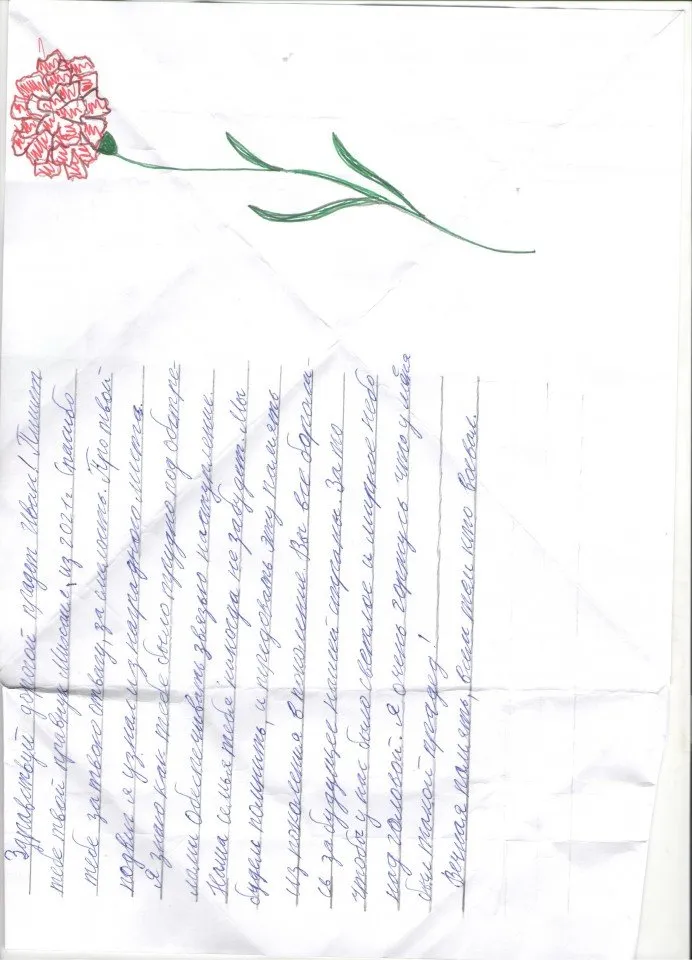 Здравствуй дорогой прадет Иван! Пишет
тебе твой правнук Михаил, из 2021г. Спасибо
тебе за твою отвагу, за смелость. Про твой
подвиг я узнал из наградного листа.
Я знаю как тебе было трудно под обстре-
лами обеспечивать связью наступление.
Наша семья тебя никогда не забудет. Мы
будем помнить, и предовать эту память
из поколения в поколение. Вы все борол-
ись за будущее нашей страны. За то
чтобы у нас было светлое и мирное небо
над головой. Я очень горжусь что у меня
был такой прадед!
Вечная память, всем тем кто воевал.